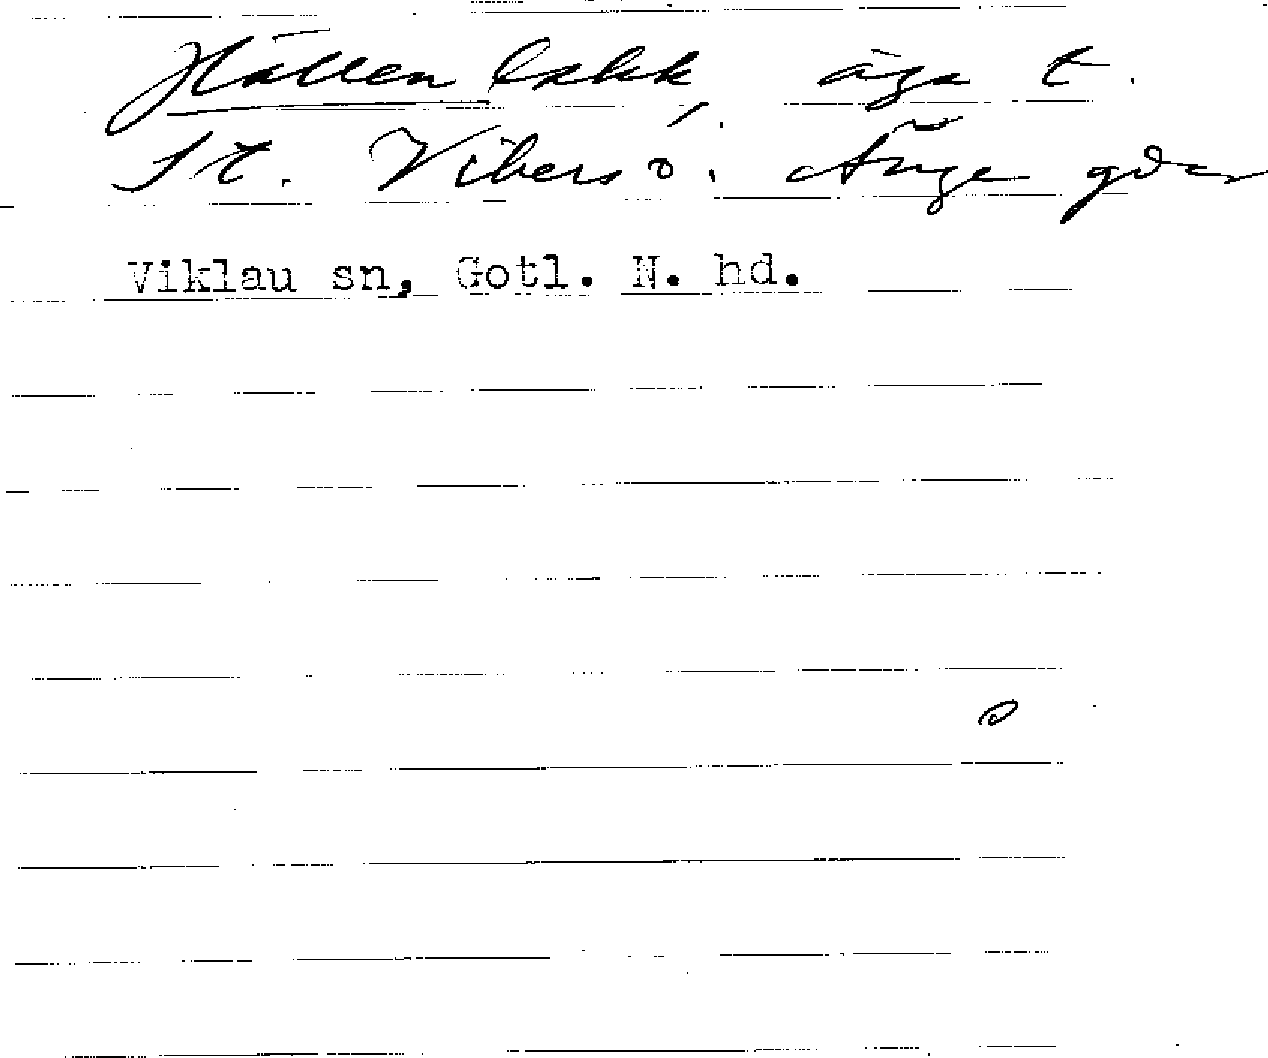 Hällen bakk, äga t.
St. Vibers o. Änge gdar
Viklau sn, Gotl. N. hd.